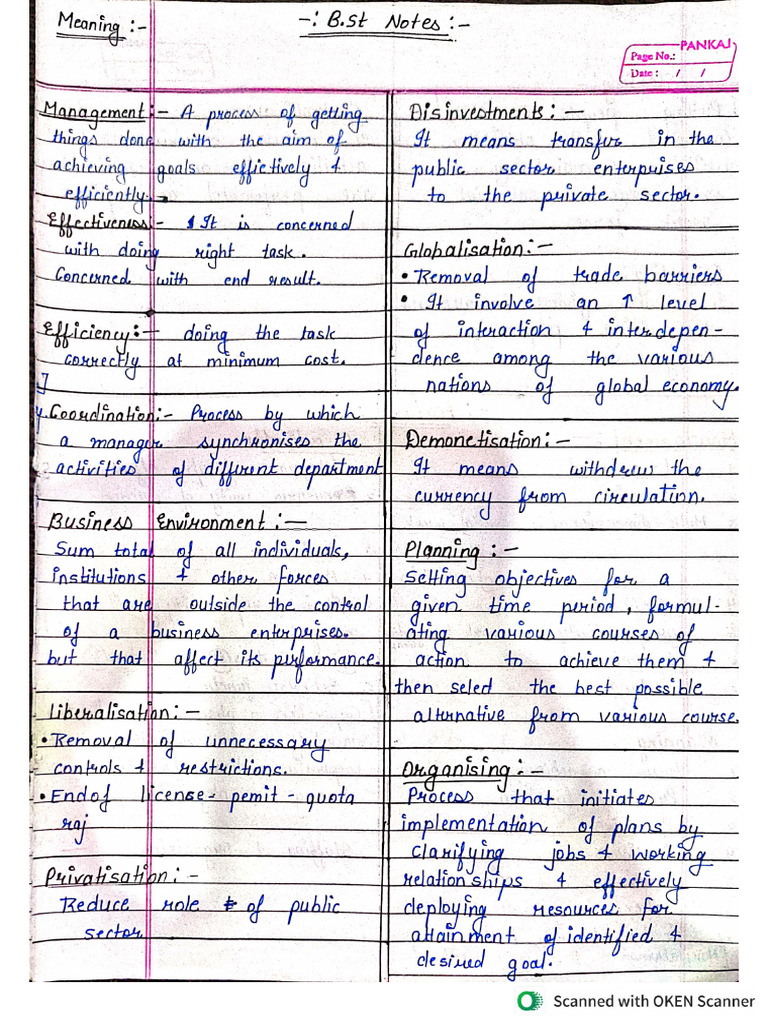 Meaning :-
-: B.St Notes :-
PANKAJ
Page No.:
Date : / /
Management :- A process of getting
things done with the aim of
achieving goals effictively &
efficiently.
Effectiveness :- It is concerned
with doing right task.
Concerned with end result.
Efficiency :- doing the task
correctly at minimum cost.
Coordination :- Process by which
a manager synchronises the
activities of different department
Business Environment :-
Sum total of all individuals,
institutions & other forces
that are outside the control
of a business enterprises.
but that affect its performance.
Liberalisation :-
• Removal of unnecessary
controls & restrictions.
• End of license - pemit - quota
raj
Privatisation :-
Reduce role of public
sector
Disinvestments :-
It means transfer in the
public sector enterprises
to the private sector.
Globalisation :-
• Removal of trade barriers
• It involve an ↑ level
of interaction & interdepen-
dence among the various
nations of global economy.
Demonetisation :-
It means withdrew the
currency from circulation.
Planning :-
Setting objectives for a
given time period, formul-
ating various courses of
action to achieve them &
then seled the best possible
alternative from various course.
Organising :-
Process that initiates
implementation of plans by
clarifying jobs & working
relationships & effectively
deploying resources for
attainment of identified &
desired goal.
Scanned with OKEN Scanner